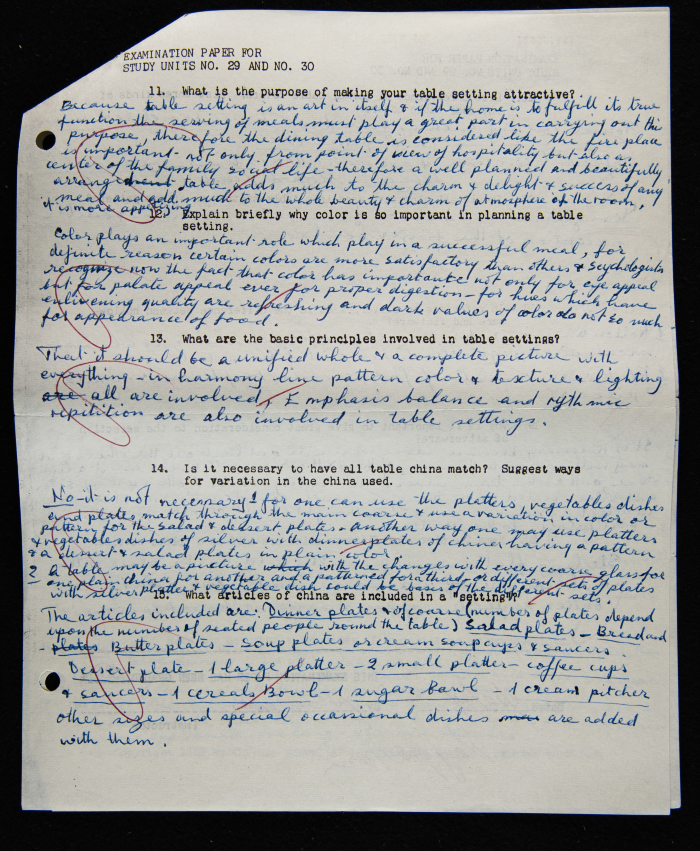 EXAMINATION PAPER FOR
STUDY UNITS NO. 29 AND NO. 30
11. What is the purpose of making your table setting attractive?
Because table setting is an art in itself & if the home is to fulfill its true
function the serving of meals must play a great part in carrying out this
purpose, therefore the dining table is considered like the fire place
is important - not only from point of view of hospitality but also as
center of the family social life - therefore a well planned and beautifully
arrangement table adds much to the charm & delight & success of any
meal and add much to the whole beauty & charm of atmosphere of the room,
it is more appetizing
12. Explain briefly why color is so important in planning a table
setting.
Color plays an important role which play in a successful meal, for
definite reason certain colors are more satisfactory than others & Psychologists
recognize now the fact that color has importance not only for eye appeal
but for palate appeal ever for proper digestion - for hues which have
enlivening quality are refreshing and dark values of color do not so much -
for appearance of food.
13. What are the basic principles involved in table settings?
That it should be a unified whole & a complete picture with
everything - in harmony line pattern color & texture & lighting
are all are involved, Emphasis balance and rythmic
repitition are also involved in table settings.
14. Is it necessary to have all table china match? Suggest ways
for variation in the china used.
No - it is not necessary! for one can use the platters, vegetables dishes
and plates match through the main coarse & use a variation in color or
pattern for the salad & dessert plates. Another way one may use platters
& vegetables dishes of silver with dinner plates of china having a pattern
& a desert & salad plates in plain color
& a table may be a picture which with the changes with every coarse, glass for
- one plain china for another and a patterned for a third, or different sets of plates
with silver platter & vegetable dish could be basis of the different sets.
15. What articles of china are included in a "setting"?
The articles included are: Dinner plates & of coarse (number of plates depend
upon the number of seated people round the table) Salad plates - Bread and
- plates Butter plates - Soup plates or cream soup cups & saucers.
Dessert plate - 1 large platter - 2 small platter - coffee cups
& saucers - 1 cereals Bowl - 1 sugar bowl - 1 cream pitcher
other sizes and special occasional dishes are added
with them.